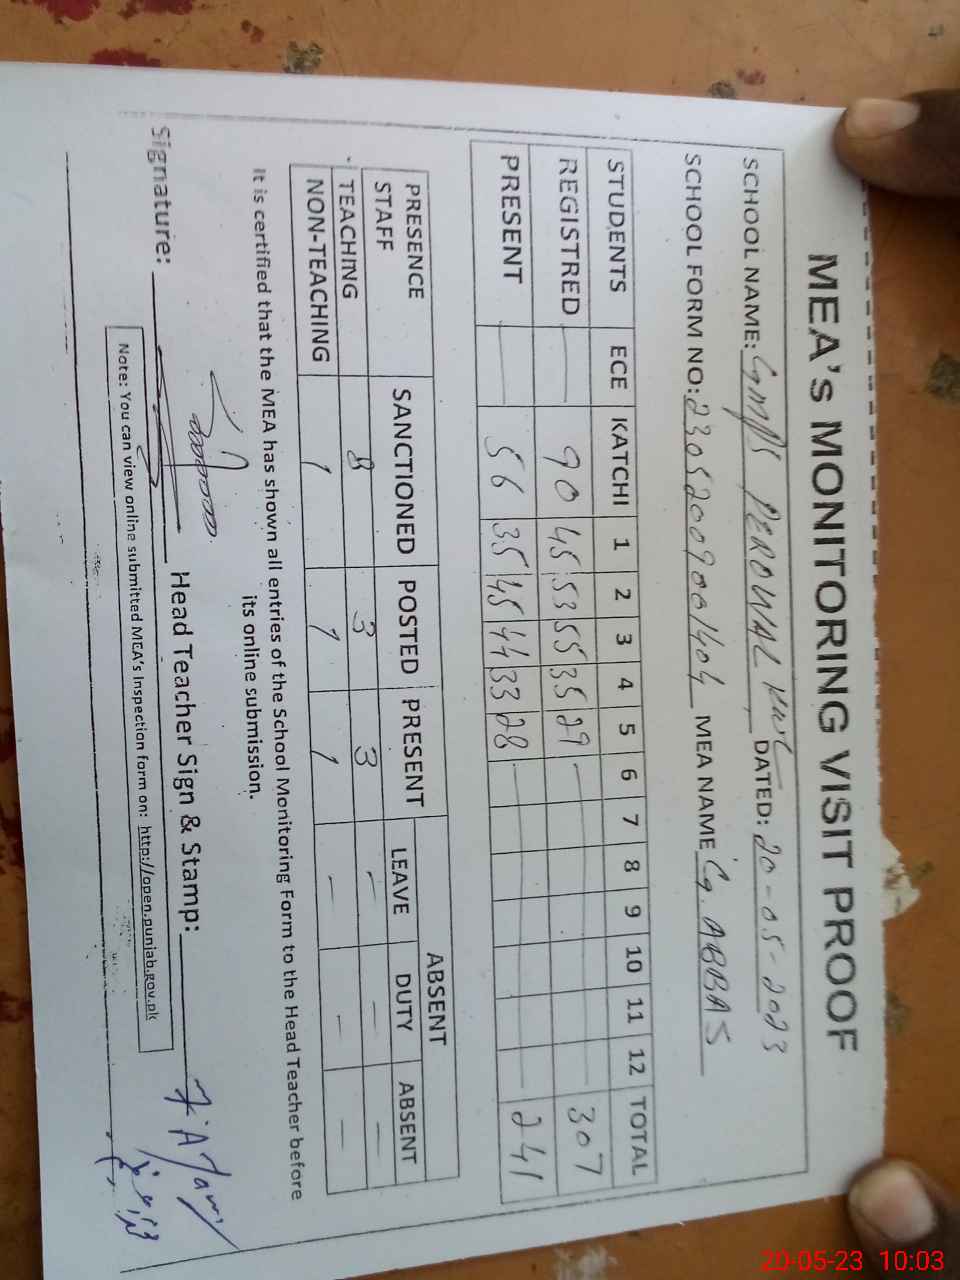 MEA's MONITORING VISIT PROOF
SCHOOL NAME: GMPS PEROWAL DATED: 20-05-2023
SCHOOL FORM NO: MEA NAME G. ABBAS
STUDENTS ECE KATCHI 1 2 3 4 5 6 7 8 9 10 11 12 TOTAL
REGISTRED — 90 45 53 55 35 29 — 307
PRESENT — 56 35 45 44 33 28 — 241
PRESENCE STAFF SANCTIONED POSTED PRESENT ABSENT
LEAVE DUTY ABSENT
TEACHING 8 3 3 — — —
NON-TEACHING 1 1 1 — — —
It is certified that the MEA has shown all entries of the School Monitoring Form to the Head Teacher before
its online submission.
Signature: Head Teacher Sign & Stamp:
Note: You can view online submitted MEA's Inspection form on: http://open.punjab.gov.pk
20-05-23 10:03